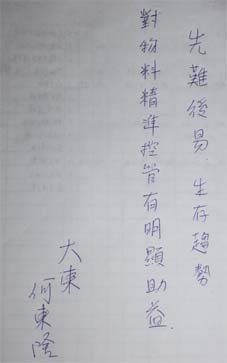 先難後易. 生存趨勢
對物料精準控管有明顯助益.
大東
何東隆